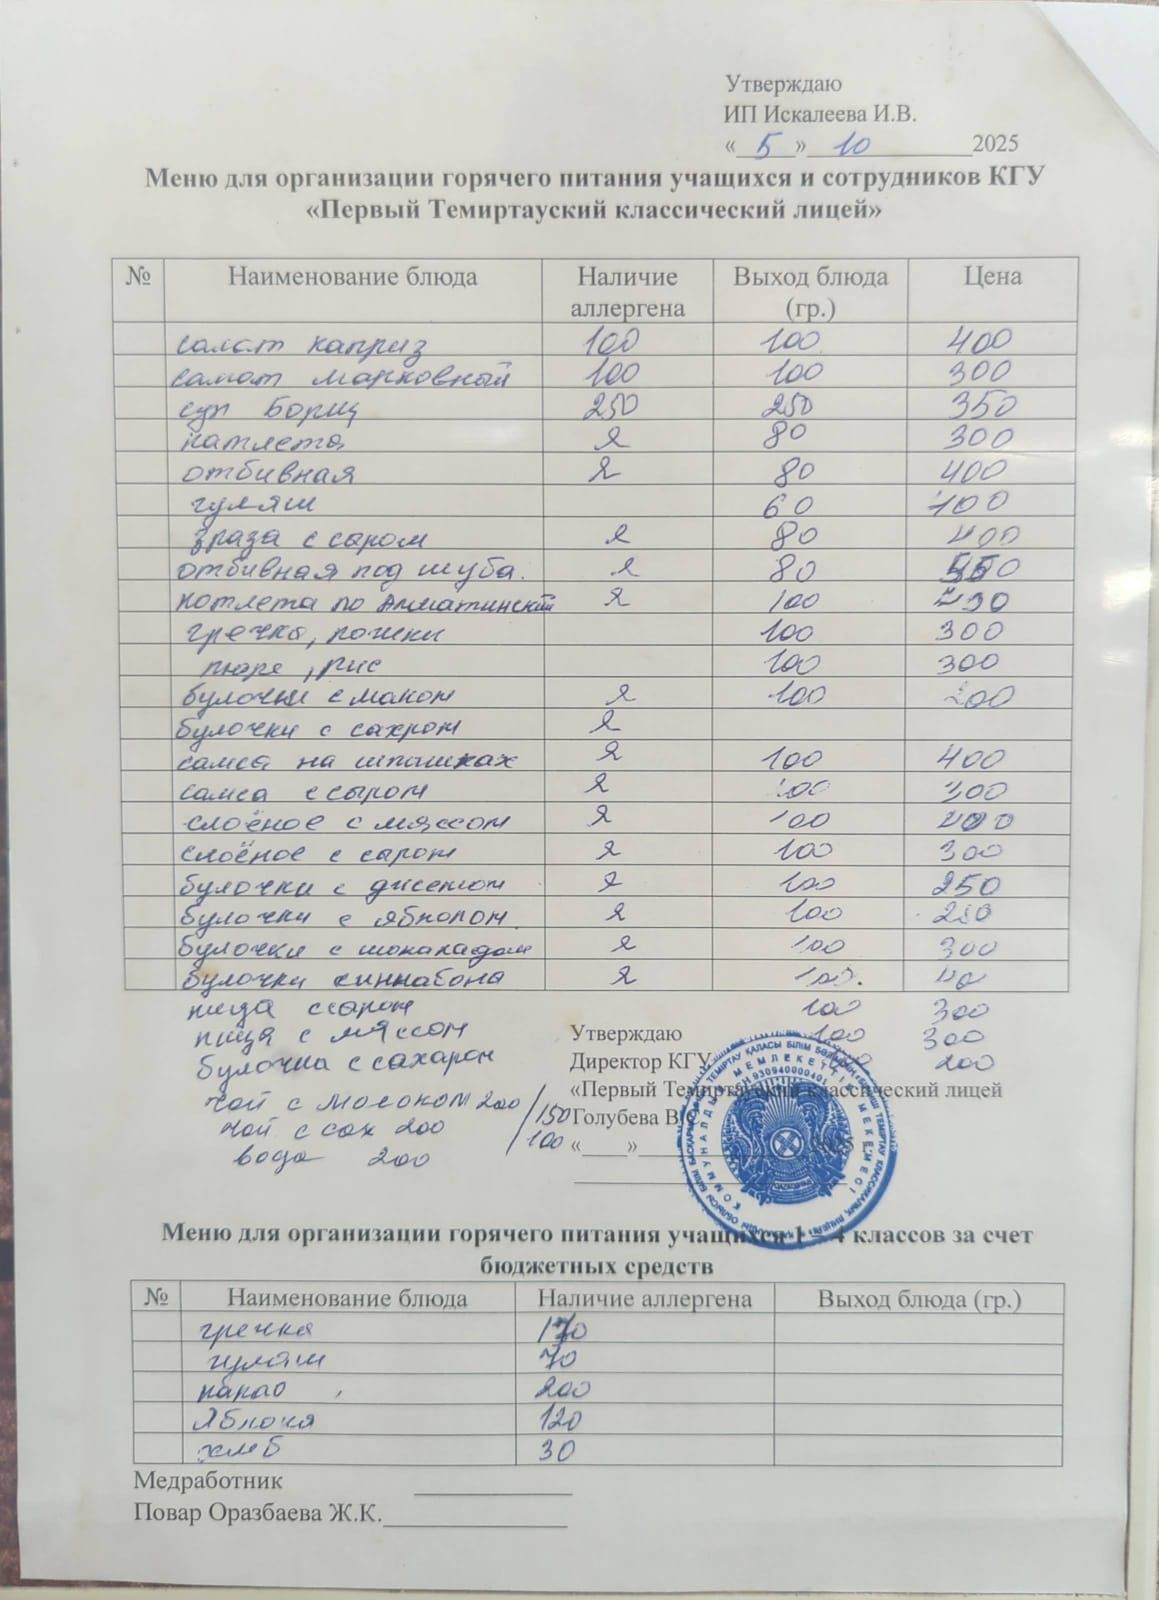 Утверждаю
ИП Искалеева И.В.
« 5 » 10 2025
Меню для организации горячего питания учащихся и сотрудников КГУ
«Первый Темиртауский классический лицей»
№ Наименование блюда Наличие аллергена Выход блюда (гр.) Цена
салат каприз 100 100 400
салат марковный 100 100 300
суп Борщ 250 250 350
катлета Я 80 300
отбивная Я 80 400
гуляш 60 400
зраза с саром Я 80 400
отбивная под шуба. Я 80
котлета по Алматинский Я 100
гречка, рошки 100 300
пюре, рис 100 300
булочки с маком Я 100 200
булочки с сахром Я
самса на шпашках Я 100 400
самса с сыром Я 100 300
слоёное с мяссом Я 100 400
слоёное с саром Я 100 300
булочки с джемом Я 100 250
булочки с яблоком Я 100 250
булочки с шокаладом Я 100 300
булочки синнабона Я 100.
пица с саром 100 300
пица с мяссом 100 300
булочка с сахаром 100 200
чай с молоком 200 /150
чай с сах 200 /100
вода 200
Утверждаю
Директор КГУ
«Первый Темиртауский классический лицей
Голубева В.С.
«___»
Меню для организации горячего питания учащихся 1 – 4 классов за счет
бюджетных средств
№ Наименование блюда Наличие аллергена Выход блюда (гр.)
гречка 170
гуляш 70
какао 200
Яблока 120
хлеб 30
Медработник
Повар Оразбаева Ж.К.